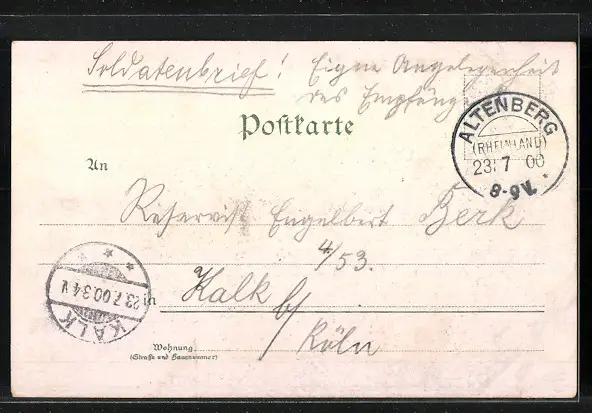 Soldatenbrief! Eigne Angelegenheit
des Empfäng
Postkarte
ALTENBERG
(RHEINLAND)
23 7 00
8-9V.
An
Reservist Engelbert Berk
4/53.
in Kalk b/
Köln
KALK
23.7.00.3-4V
Wohnung
(Straße und Hausnummer)